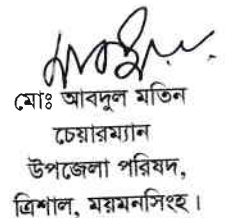 মোঃ আবদুল মতিন
চেয়ারম্যান
উপজেলা পরিষদ,
ত্রিশাল, ময়মনসিংহ।